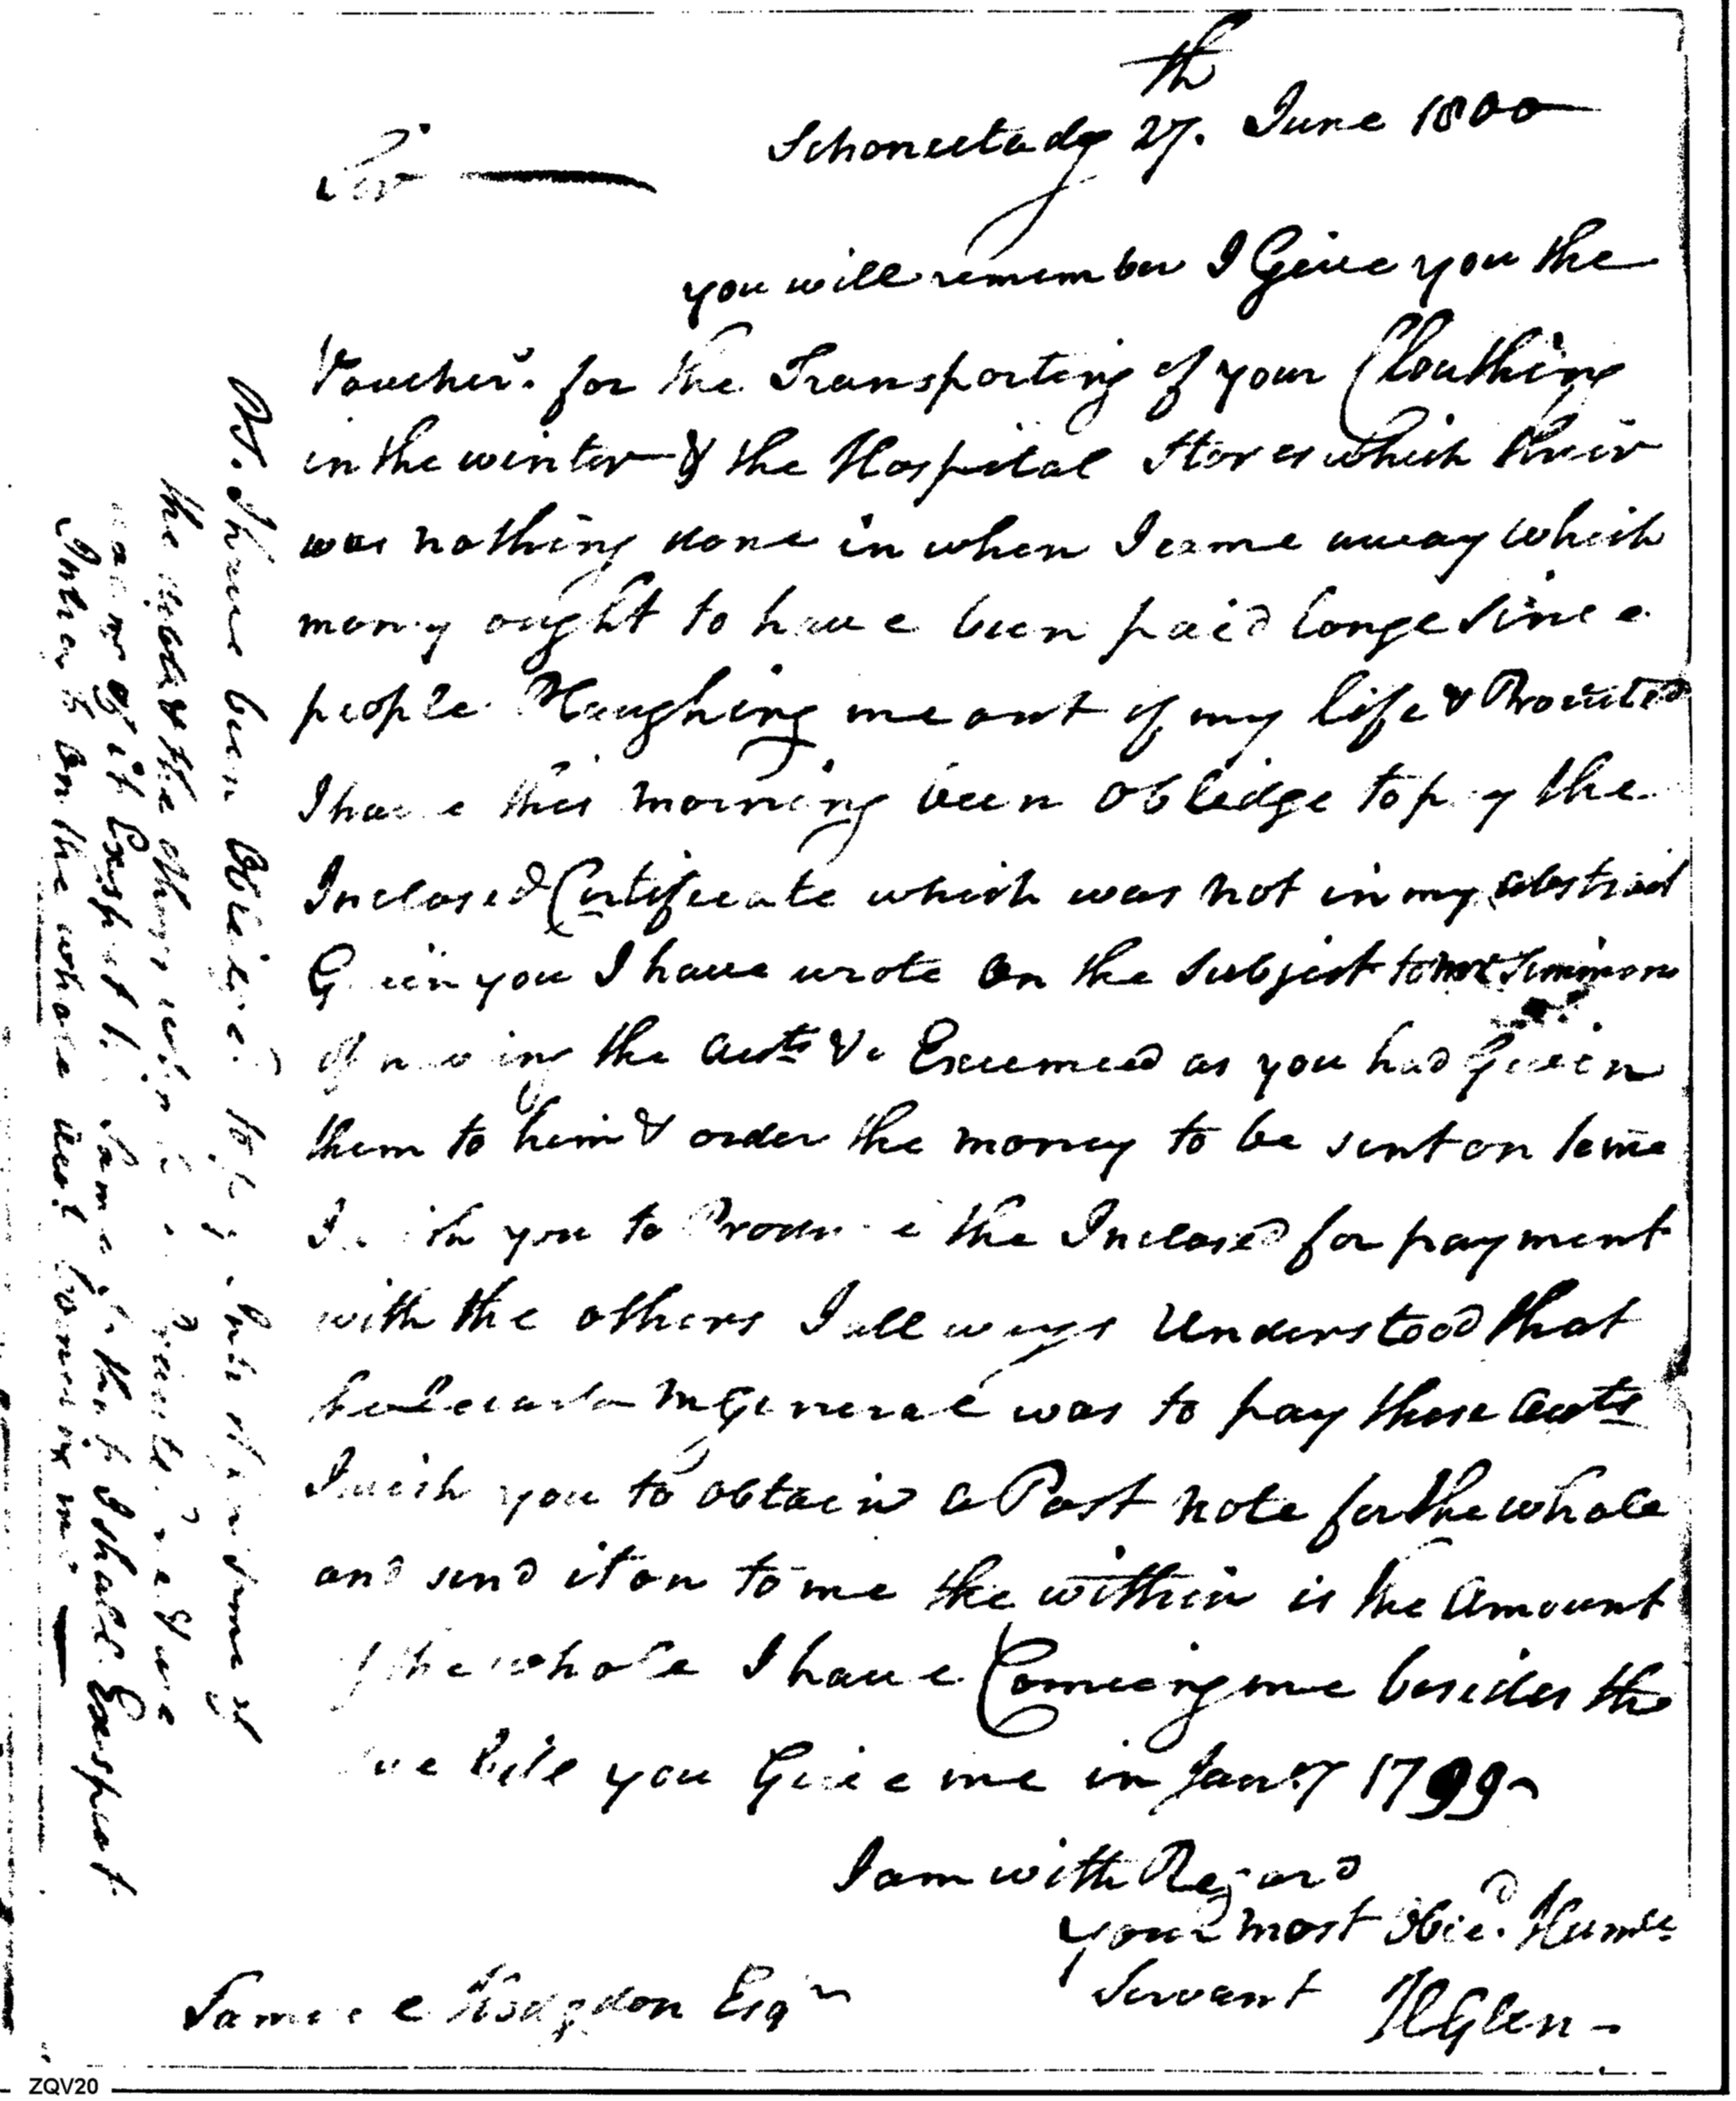 Schonectady 27th. June 1800
Sir
you will remember I Geive you the
Voucher's. for the Transporting of your Cloathing
in the winter & the Hospital Stores which their
was nothing done in when I came away which
money ought to have been paid longe since
people Haughing me out of my life &
I have this morning been obledge to pay the
Inclosed Certificate which was not in my abstract
Geiein you I have wrote on the Subject to Mr Simmons
of having the Accts &c Exeemeed as you had Geiein
them to him & order the money to be sent on to me
I wish you to Produce the Inclosed for payment
with the others I allways Understood that
General was to pay those Accts
I wish you to obtain a Post note for the whole
and send it on to me the within is the Amount
of the whole I have Comeing me besides the
bill you Geive me in Jany 1799
I am with Regard
your most Obed. Humle
Servant HGlen
Samuel Hodgdon Esqr
PS. I have been Obleiged to pay this
the & the other
of it Exspect the same if that I shall Exspect
Interest on the whole Acct Comeing me
ZQV20